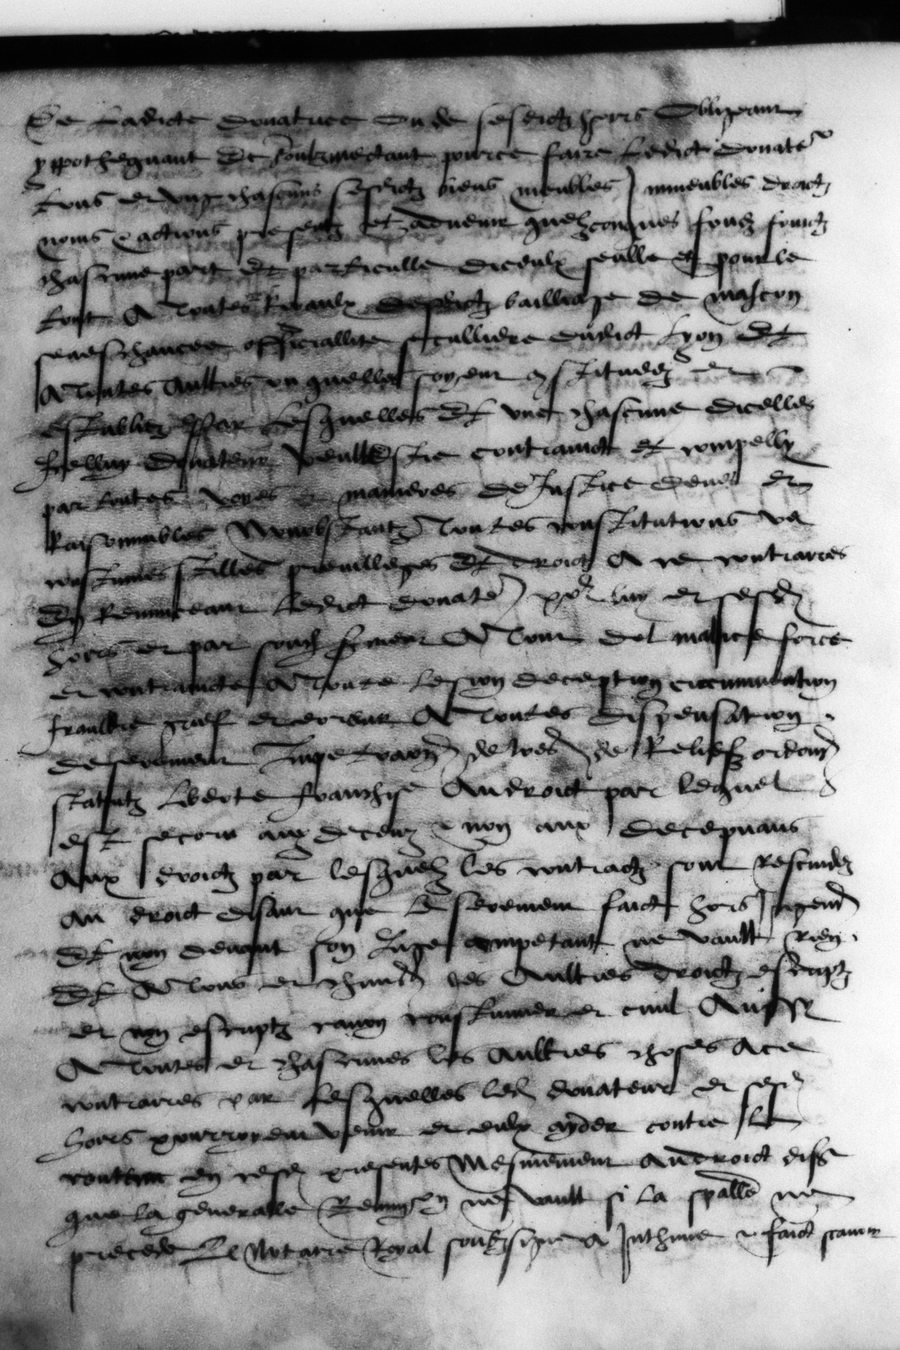 De ladicte donatrice ou de sesdictz hoirs Obligeant
ypothequant et soubzmectant pource faire ledict donateur
tous et ungs chascuns sesdictz biens meubles immeubles droictz
noms & actions presentz et advenir quelzconques
chascune part et particulle diceulx seulle et pour le
tout A toutes Royaulx desdictz bailliage de mascon
seneschaucee officiallite seculliere dudict Lyon Et
A toutes aultres ou quelles soyent constituees et
establies Par lesquelles Et une chascune dicelles
Icelluy donateur veult estre contrainct et compelly
par toutes voyes & manieres de Justice deues et
Raisonnables Nonobstantz toutes constitutions us
coustumes stilles previlleges Et droictz A ce contraires
En Renunceant ledict donateur pour luy et sesdictz
hoirs et par serement A tout dol malice force
et contraincte A toute lesion deception circumvention
fraulde grief et erreur A toutes dispensation
de serement Impetration de lettres de Relief ordonn
statutz liberte franchise Au droict par lequel
est secouru aux deceuz & non aux decepvans
Aux droictz par lesquelz les contractz sont Rescindez
au droict disant que le serement faict hors Jugement
Et non devant son Juge competant ne vault rien
Et A tous et chascuns les Aultres droictz escriptz
et non escriptz canon coustumier et civil Aussi
A toutes et chascunes les aultres choses A ce
contraires par lesquelles led donateur et sesd
hoirs pourroyent venir et eulx ayder contre le
contenu en cesd presentes Mesmement Au droict disant
que la generalle Renunciation ne vault si la specialle ne
precede Le Notaire Royal soubzsigne a Inthime & faict scavoir